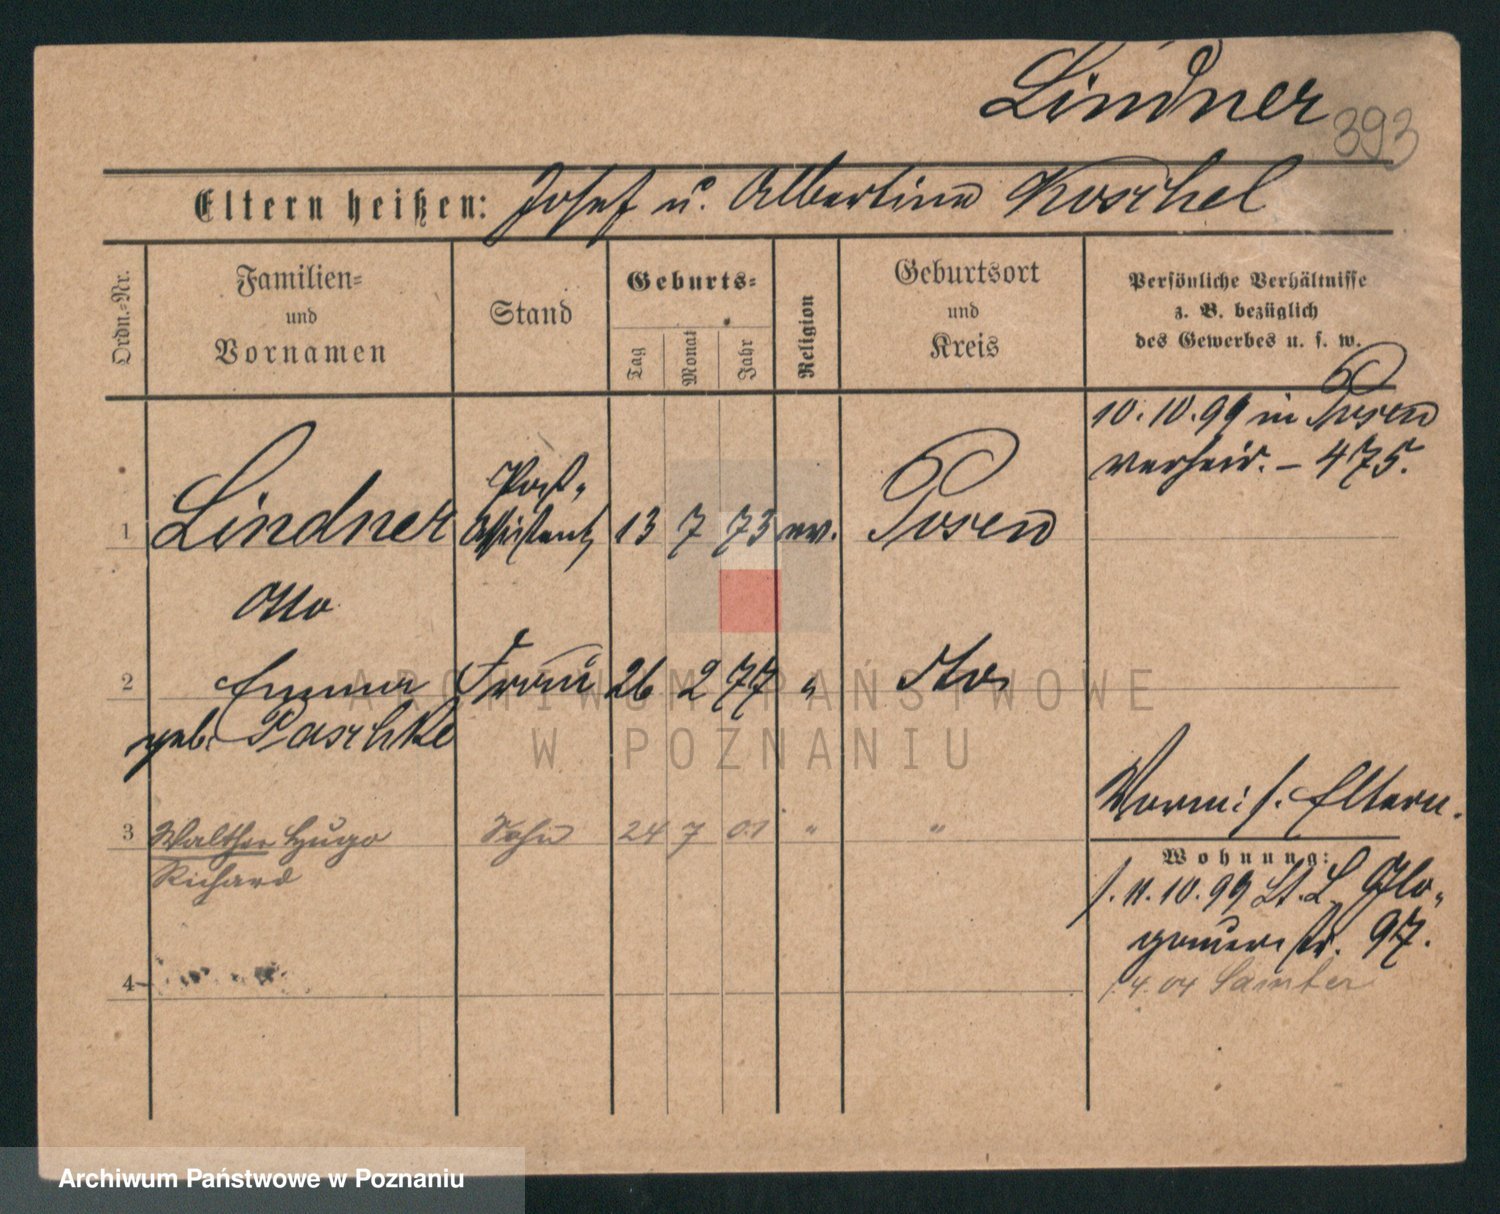 Lindner
393
Eltern heißen: Josef u. Albertine Koschel
Ordn.-Nr.
Familien-
und
Vornamen
Stand
Geburts-
Tag
Monat
Jahr
Religion
Geburtsort
und
Kreis
Persönliche Verhältnisse
z. B. bezüglich
des Gewerbes u. s. w.
10.10.99 in Posen
verheir. – 475.
1 Lindner Post- Assistent 13 7 73 ev. Posen
Otto
2 Emma Frau 26 2 77 " dto
geb. Paschke
3 Walther Hugo Sohn 24 7 01 " "
Richard
4
Vorm: s. Eltern.
Wohnung:
s. 11.10.99 St. L. Glo-
gauerstr. 97.
1.4.04 Samter
ARCHIWUM PAŃSTWOWE
W POZNANIU
Archiwum Państwowe w Poznaniu